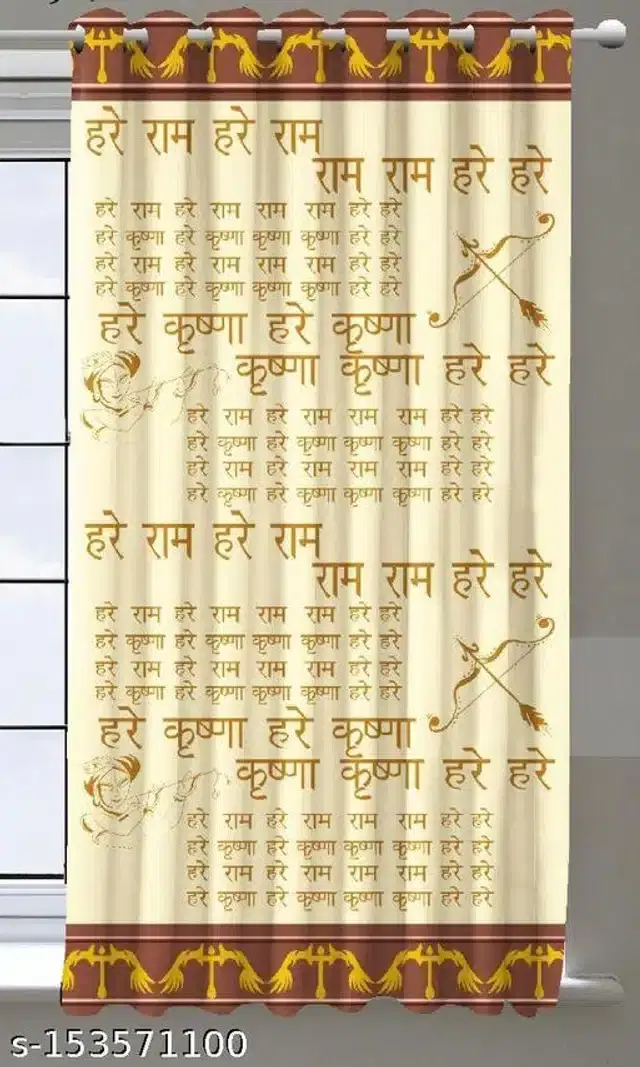 हरे राम हरे राम
राम राम हरे हरे
हरे राम हरे राम राम राम हरे हरे
हरे कृष्णा हरे कृष्णा कृष्णा कृष्णा हरे हरे
हरे राम हरे राम राम राम हरे हरे
हरे कृष्णा हरे कृष्णा कृष्णा कृष्णा हरे हरे
हरे कृष्णा हरे कृष्णा
कृष्णा कृष्णा हरे हरे
हरे राम हरे राम राम राम हरे हरे
हरे कृष्णा हरे कृष्णा कृष्णा कृष्णा हरे हरे
हरे राम हरे राम राम राम हरे हरे
हरे कृष्णा हरे कृष्णा कृष्णा कृष्णा हरे हरे
हरे राम हरे राम
राम राम हरे हरे
हरे राम हरे राम राम राम हरे हरे
हरे कृष्णा हरे कृष्णा कृष्णा कृष्णा हरे हरे
हरे राम हरे राम राम राम हरे हरे
हरे कृष्णा हरे कृष्णा कृष्णा कृष्णा हरे हरे
हरे कृष्णा हरे कृष्णा
कृष्णा कृष्णा हरे हरे
हरे राम हरे राम राम राम हरे हरे
हरे कृष्णा हरे कृष्णा कृष्णा कृष्णा हरे हरे
हरे राम हरे राम राम राम हरे हरे
हरे कृष्णा हरे कृष्णा कृष्णा कृष्णा हरे हरे
s-153571100